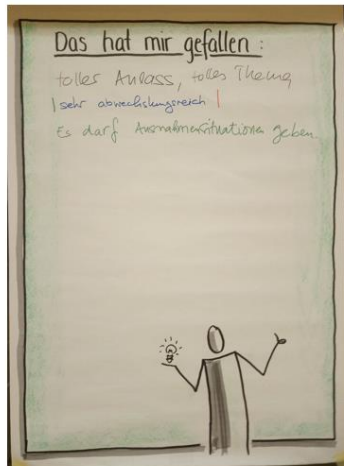 Das hat mir gefallen:
toller Anlass, tolles Thema
sehr abwechslungsreich
Es darf Ausnahmesituationen geben.